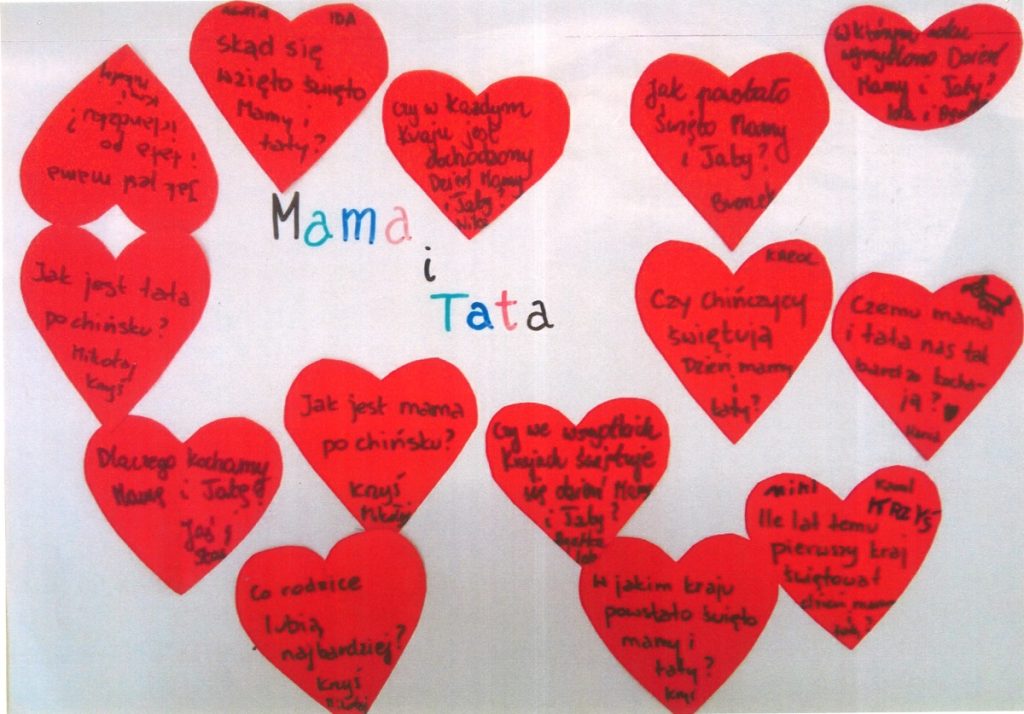 IDA
skąd się
wzięło święto
Mamy i
taty?
Jak jest mama
i tata po
irlandzku?
Krzyś
Mikołaj
Czy w każdym
kraju jest
Dzień Mamy
i Taty?
Niki
Jak powstało
Święto Mamy
i Taty?
W którym roku
wymyślono Dzień
Mamy i Taty?
Ida i
Mama
i
Tata
Jak jest tata
po chińsku?
Mikołaj
Krzyś
KAROL
Czy chińczycy
świętują
Dzień mamy
i
taty?
Czemu mama
i tata nas tak
bardzo kocha-
ją?
Karol
Jak jest mama
po chińsku?
Krzyś
Mikołaj
Dlaczego kochamy
Mamę i Tatę?
Jaś i
Staś
Czy we wszystkich
krajach świętuje
się dzień Mamy
i Taty?
MIKI
Karol
KRZYŚ
Ile lat temu
pierwszy kraj
świętował
dzień mamy
taty?
Co rodzice
lubią
najbardziej?
Krzyś
W jakim kraju
powstało święto
mamy i
taty?
Krzyś